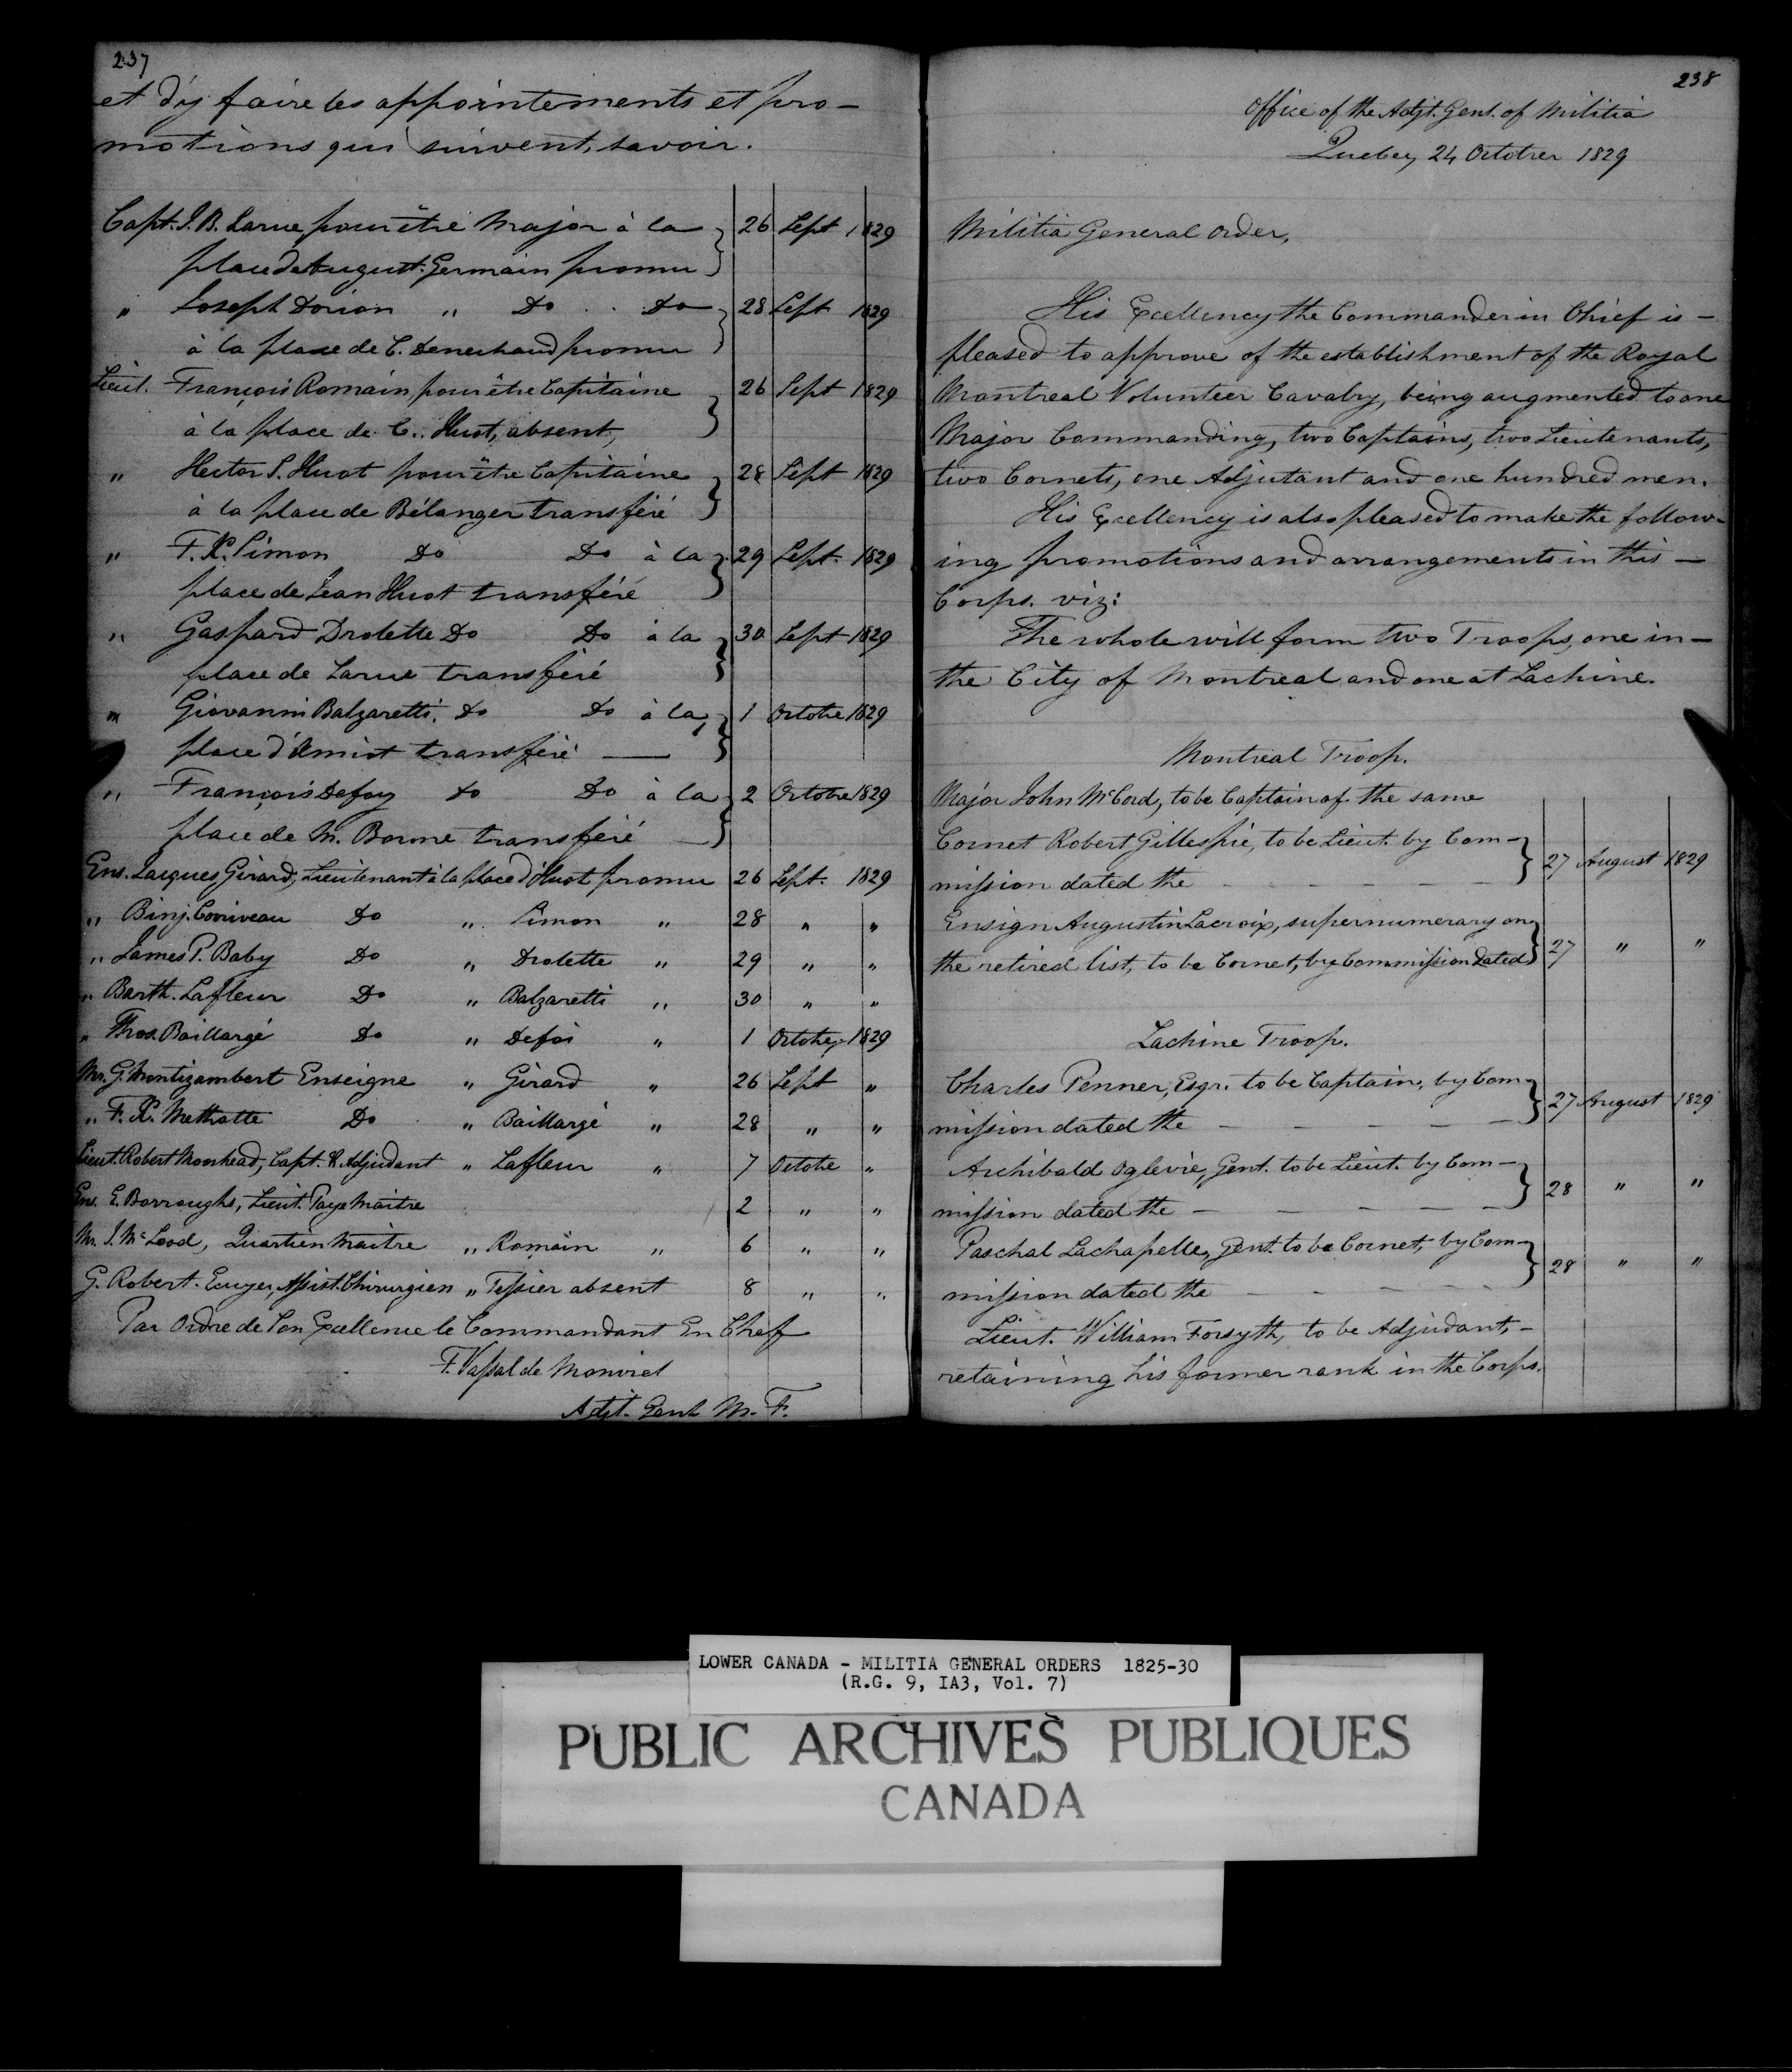 237
et d'y faire les appointements et pro-
motions qui suivent, savoir.
Capt. J. B. Larue pour être Major à la } 26 Sept 1829
place de August. Germain promu
" Joseph Dorion " Do . . Do } 28 Sept 1829
à la place de C. Denechaud promu
Lieut. François Romain pour être Capitaine } 26 Sept 1829
à la place de C. Huot, absent,
" Hector S. Huot pour être Capitaine } 28 Sept 1829
à la place de Bélanger transféré
" F. X. Simon Do Do à la } 29 Sept. 1829
place de Jean Huot transféré
" Gaspard Drolette Do Do à la } 30 Sept 1829
place de Larue transféré
" Giovanni Balzaretti. Do Do à la } 1 Octobre 1829
place d'Amiot transféré —
" François Defoy do Do à la } 2 Octobre 1829
place de M. Borne transféré —
Ens. Jacques Girard, Lieutenant à la place d'Huot promu 26 Sept. 1829
" Binj. Corriveau Do " Simon " 28 " "
" James P. Baby Do " Drolette " 29 " "
" Barth. Lafleur Do " Balzaretti " 30 " "
" Thos. Baillargé Do " Defoi " 1 Octobre 1829
Mr. G. Montizambert Enseigne " Girard " 26 Sept "
" F. X. Methotte Do " Baillargé " 28 " "
Lieut. Robert Moorhead, Capt. & Adjudant " Lafleur " 7 Octobre "
Ens. E. Borroughs, Lieut. Paye Maitre 2 " "
Mr. J. McLeod, Quartier Maitre " Romain " 6 " "
G. Robert. Ecuyer, Assist. Chirurgien " Tessier absent 8 " "
Par Ordre de Son Excellence le Commandant En Chef
F. Vassal de Monviel
Adjt. Genl. M. F.
238
Office of the Adjt. Genl. of Militia
Quebec, 24 October 1829
Militia General Order,
His Excellency the Commander in Chief is —
pleased to approve of the establishment of the Royal
Montreal Volunteer Cavalry, being augmented to one
Major Commanding, two Captains, two Lieutenants,
two Cornets, one Adjutant and one hundred men.
His Excellency is also pleased to make the follow-
ing promotions and arrangements in this —
Corps. viz:
The whole will form two Troops, one in —
the City of Montreal and one at Lachine.
Montreal Troop.
Major John McCord, to be Captain of the same
Cornet Robert Gillespie, to be Lieut. by Com- } 27 August 1829
mission dated the — — — — —
Ensign Augustin Lacroix, supernumerary on } 27 " "
the retired list, to be Cornet, by Commission dated
Lachine Troop.
Charles Penner, Esqr. to be Captain, by Com- } 27 August 1829
mission dated the — — — — —
Archibald Oglevie, Gent. to be Lieut. by Com- } 28 " "
mission dated the — — — — —
Paschal Lachapelle, Gent. to be Cornet, by Com- } 28 " "
mission dated the — — — — —
Lieut. William Forsyth, to be Adjudant, —
retaining his former rank in the Corps.
LOWER CANADA - MILITIA GENERAL ORDERS 1825-30
(R.G. 9, IA3, Vol. 7)
PUBLIC ARCHIVES PUBLIQUES
CANADA